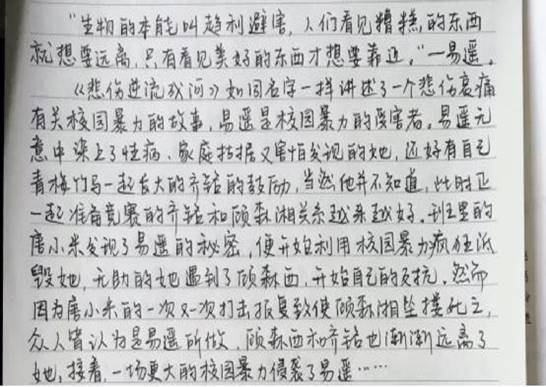 "生物的本能叫趋利避害，人们看见糟糕的东西
就想要远离，只有看见美好的东西才想要靠近。"—易遥。
《悲伤逆流成河》如同名字一样讲述了一个悲伤哀痛
有关校园暴力的故事，易遥是校园暴力的受害者。易遥无
意中染上了性病、家庭拮据又害怕发现的她，还好有自己
青梅竹马一起长大的齐铭的鼓励，当然他并不知道，此时正
一起准备竞赛的齐铭和顾森湘关系越来越好。班里的
唐小米发现了易遥的秘密，便开始利用校园暴力疯狂诋
毁她，无助的她遇到了顾森西，开始自己的反抗。然而
因为唐小米的一次又一次打击报复致使顾森湘坠楼死亡，
众人皆认为是易遥所做，顾森西和齐铭也渐渐远离了
她，接着，一场更大的校园暴力侵袭了易遥……